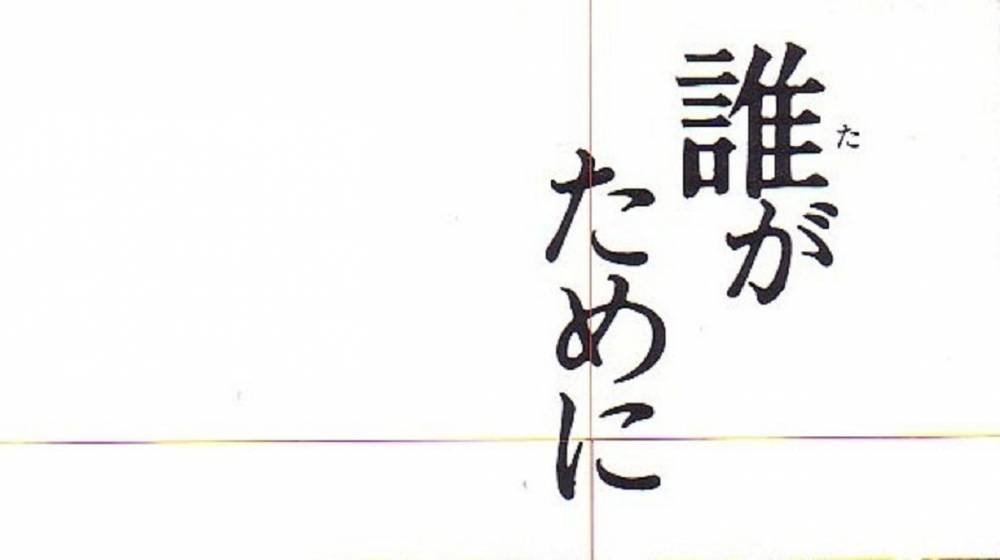 誰が
た
ために